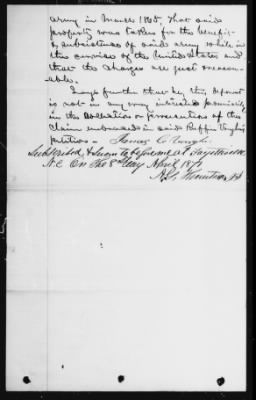 army in March 1865, that said
property was taken for the benefit
& subsistence of said army while in
the service of the United States and
that the charges are just & reason-
able.
Says further that he, this deponent
is not in any way interested pecuniarily
in the collection or prosecution of this
Claim embraced in said Ruffin
petition - James C
Subscribed & Sworn to before me at Fayetteville
N.C. On the 8th day April 1871